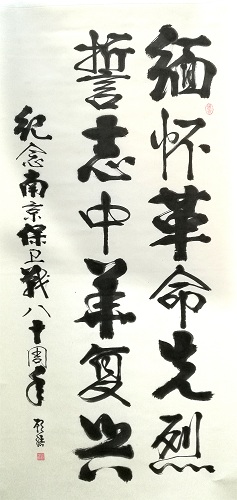 缅怀革命先烈
誓志中华复兴
纪念南京保卫战八十周年